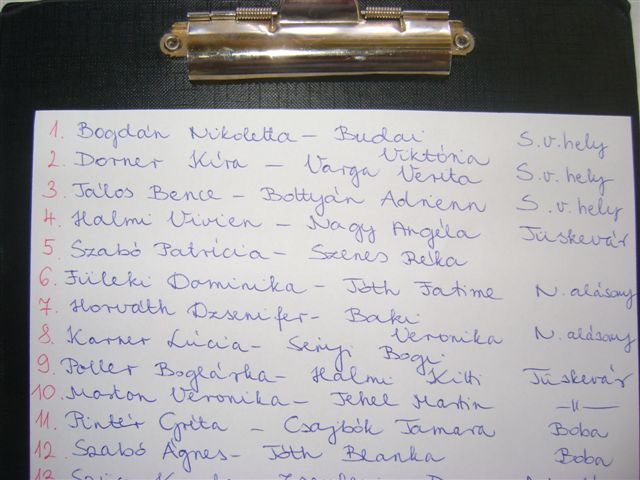 1. Bogdán Nikoletta - Budai Viktória S.v.hely
2. Dorner Kíra - Varga Verita S.v.hely
3. Tálos Bence - Bottyán Adrienn S.v.hely
4. Halmi Vivien - Nagy Angéla Tüskevár
5. Szabó Patrícia - Szenes Réka
6. Füleki Dominika - Tóth Fatime N.alásony
7. Horváth Dzsenifer - Baki Veronika N.alásony
8. Karner Lúcia - Bogi
9. Poller Boglárka - Halmi Kitti Tüskevár
10. Marton Veronika - Tehel Martin -||-
11. Pintér Gréta - Csajbók Tamara Boba
12. Szabó Ágnes - Tóth Blanka Boba
13.